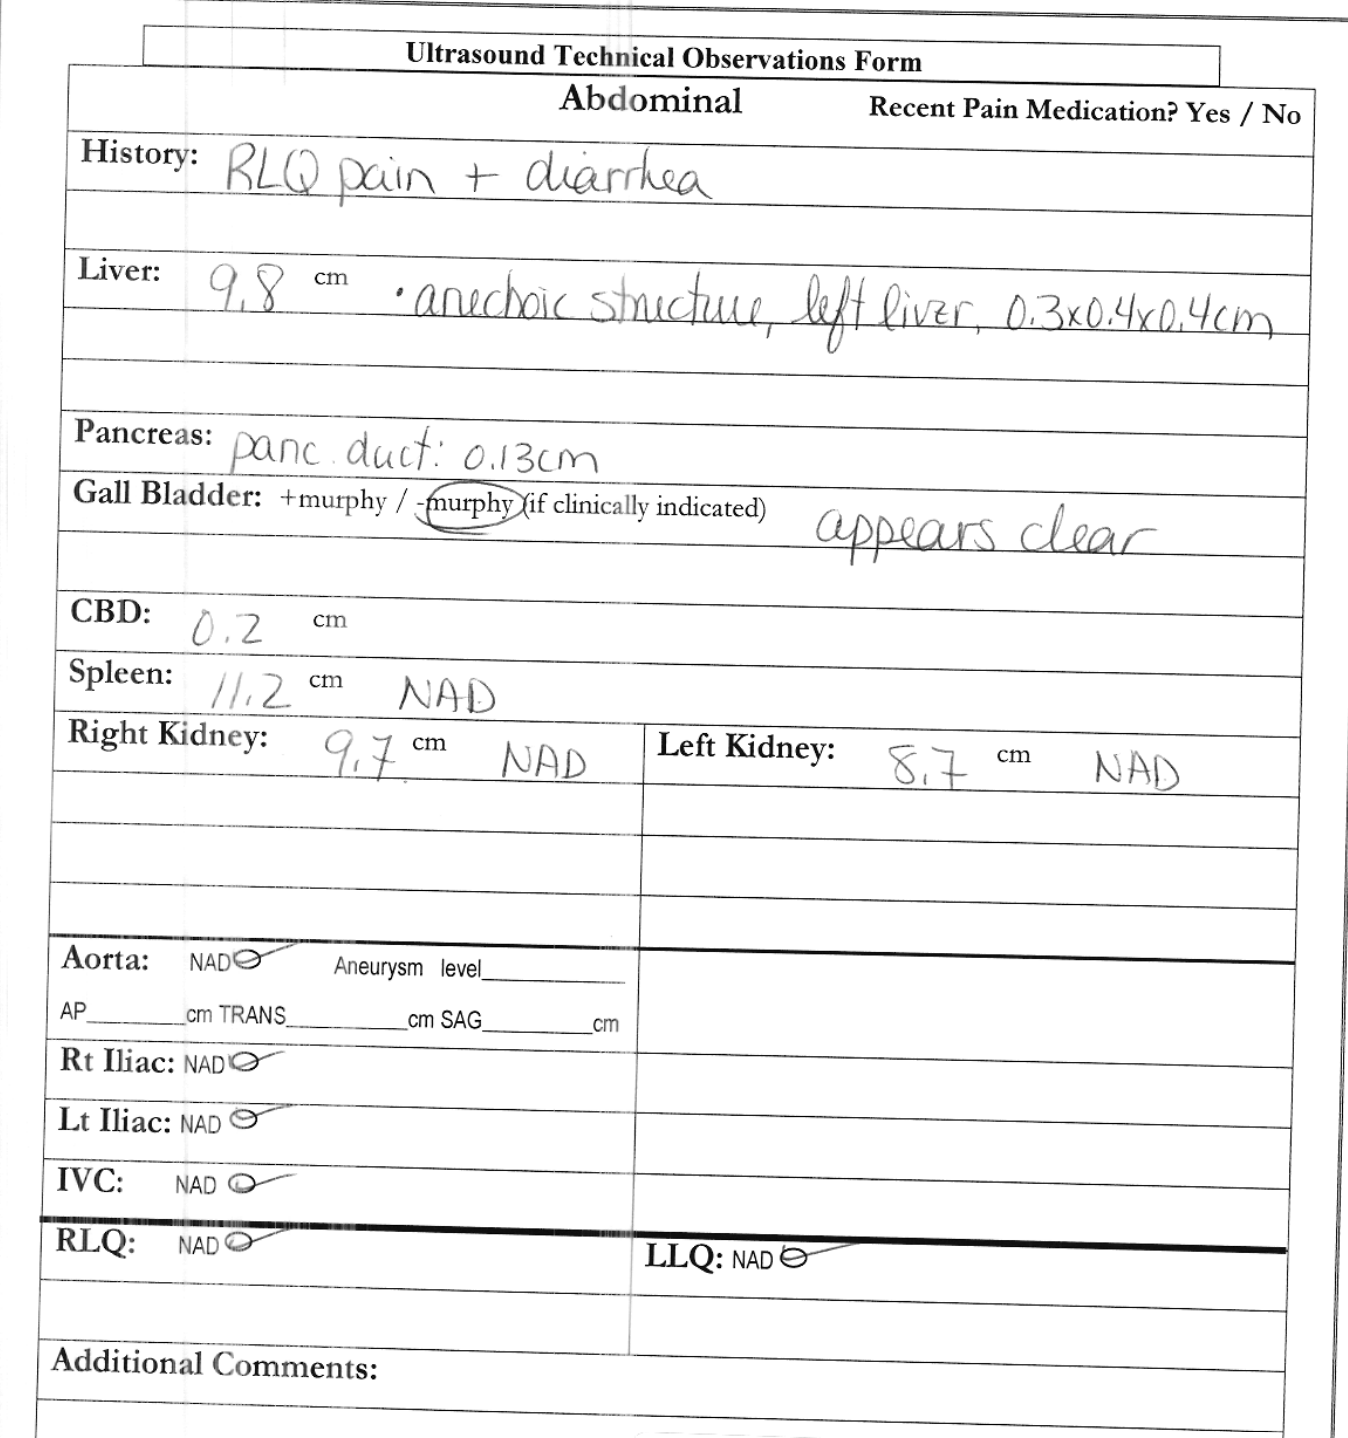 Ultrasound Technical Observations Form
Abdominal Recent Pain Medication? Yes / No
History: RLQ pain + diarrhea
Liver: 9.8 cm • anechoic structure, left liver, 0.3x0.4x0.4cm
Pancreas: panc. duct: 0.13cm
Gall Bladder: +murphy / -murphy (if clinically indicated) appears clear
CBD: 0.2 cm
Spleen: 11.2 cm NAD
Right Kidney: 9.7 cm NAD Left Kidney: 8.7 cm NAD
Aorta: NAD Aneurysm level
AP cm TRANS cm SAG cm
Rt Iliac: NAD
Lt Iliac: NAD
IVC: NAD
RLQ: NAD LLQ: NAD
Additional Comments: